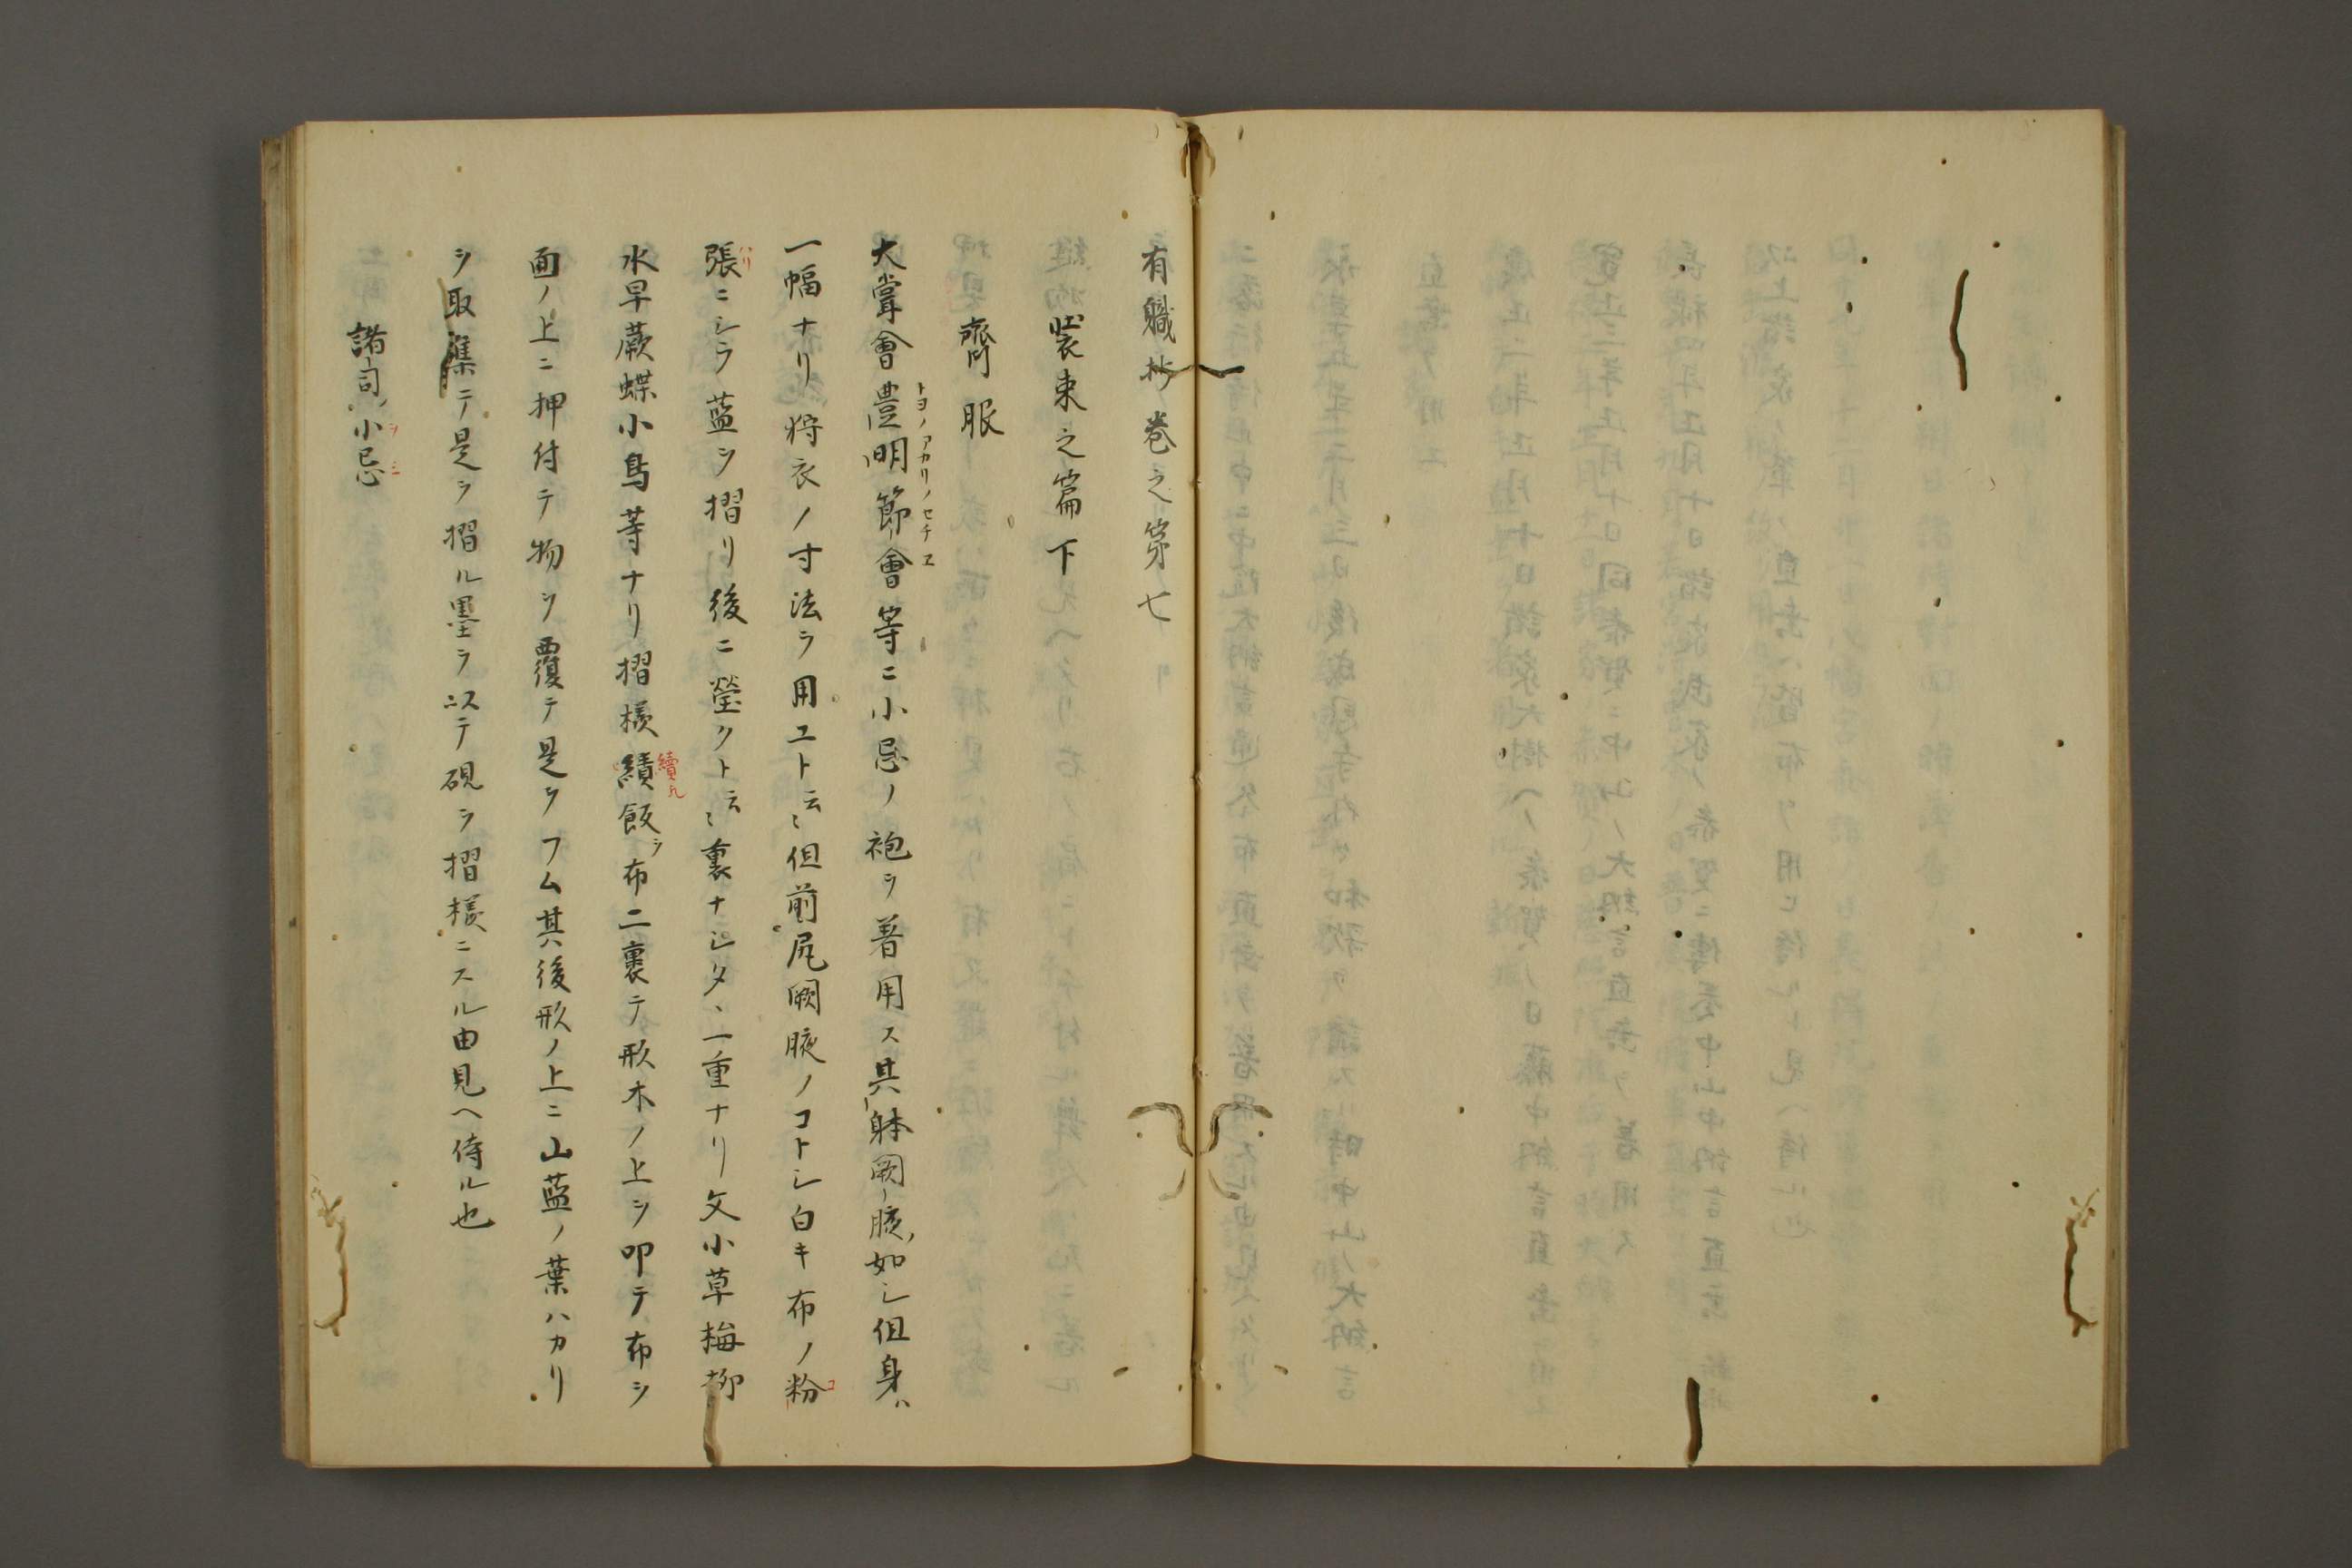 有職抄巻之第七
装束之篇下
齋服
大嘗會豊明節會等ニ小忌ノ袍ヲ着用ス其躰闕腋ノ如シ但身ハ
トヨノアカリノセチエ
一幅ナリ狩衣ノ寸法ヲ用ユト云〻但前尻闕腋ノコトシ白キ布ノ粉
コ
張ニシテ藍ヲ摺リ後ニ瑩クト云〻裏ナシタヽ一重ナリ文小草梅柳
ハリ
水早蕨蝶小鳥等ナリ摺様績飯ヲ布ニ裹テ形木ノ上ヲ叩テ布ヲ
續
面ノ上ニ押付テ物ヲ覆テ是ヲフム其後形ノ上ニ山藍ノ葉ハカリ
ヲ取集テ是ヲ摺ル墨ヲ以テ硯ヲ摺様ニスル由見ヘ侍ル也
諸司ノ小忌
ヲミ